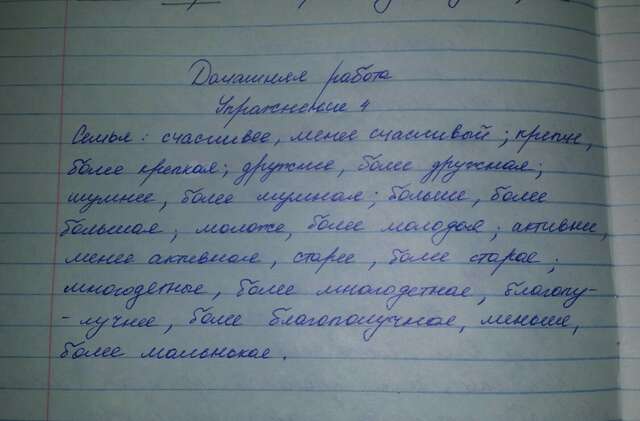 Домашняя работа
Упражнение 4
Семья: счастливее, менее счастливый; крепче,
более крепкая; дружнее, более дружная;
шумнее, более шумная; больше, более
большая; моложе, более молодая; активнее,
менее активная, старее, более старая;
многодетные, более многодетная, благопу-
-лучнее, более благополучная, меньше,
более маленькая.